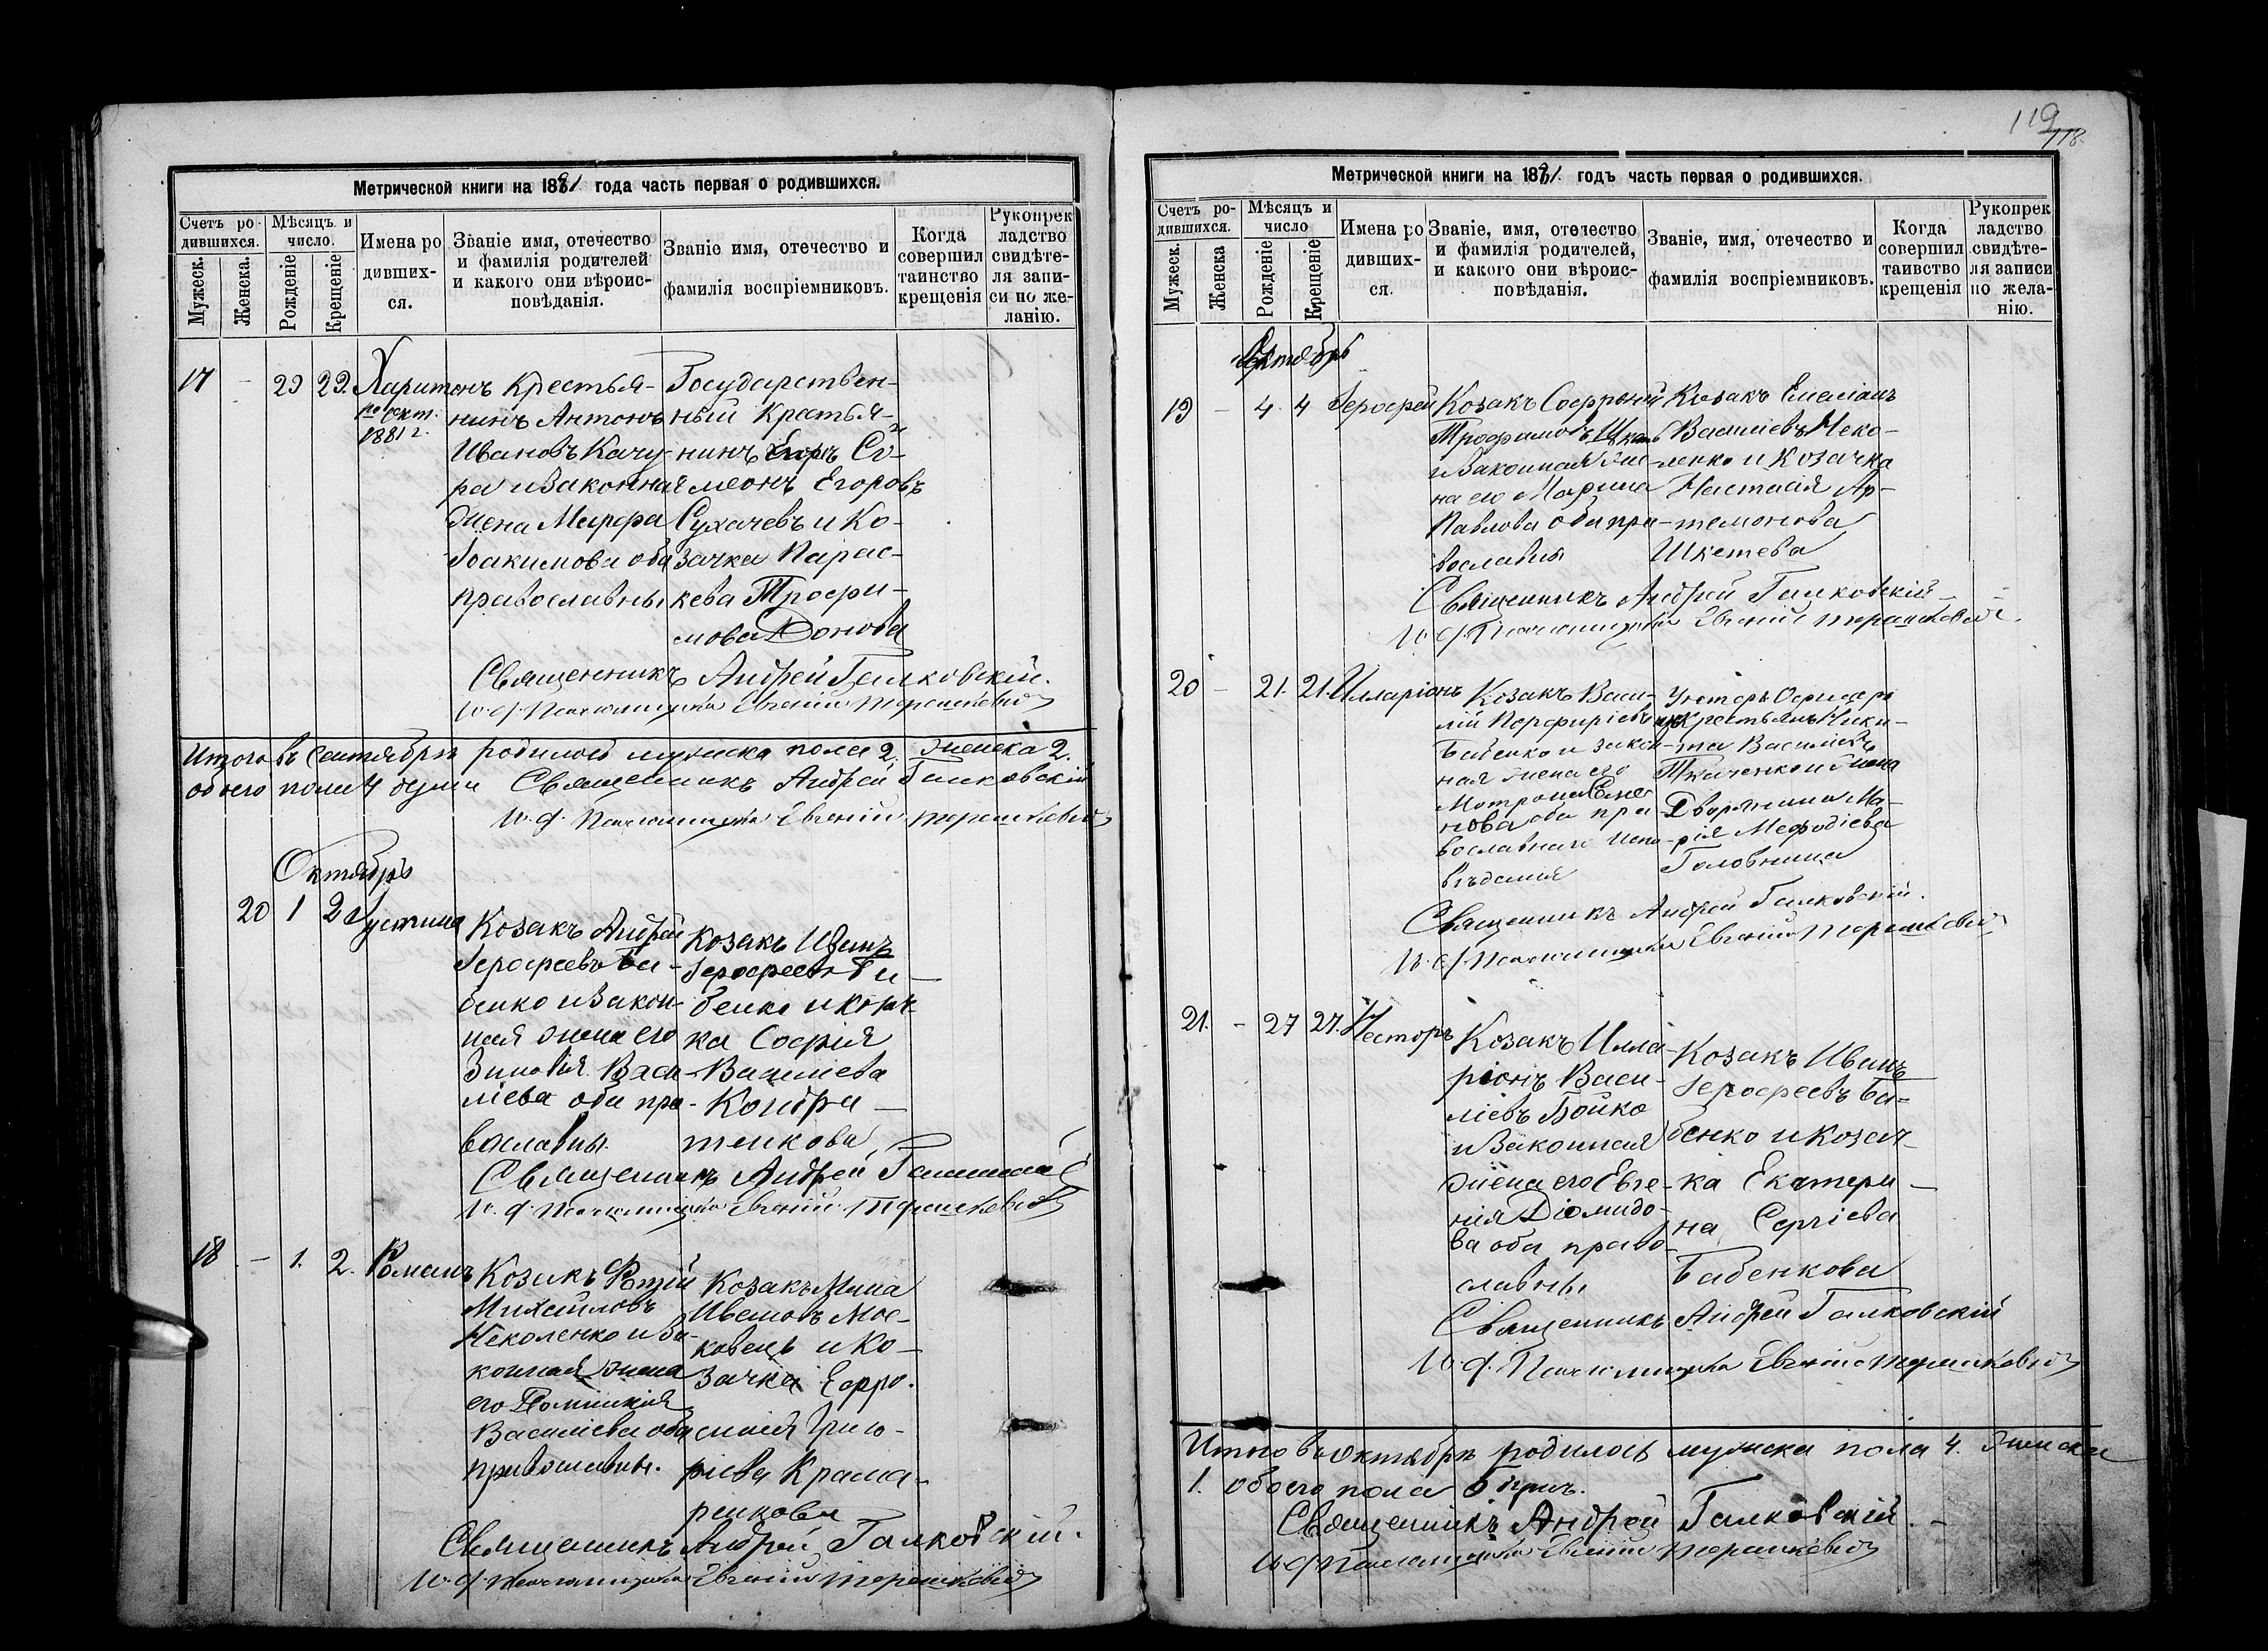 Метрической книги на 1881 года часть первая о родившихся.
Счетъ ро-
дившихся.
Мужеск.
Женска.
Мѣсяцъ и
число.
Рожденіе
Крещеніе
Имена ро
дивших-
ся.
Званіе имя, отечество
и фамилія родителей
и какого они вѣроис-
повѣданія.
Званіе имя, отечество и
фамилія воспріемниковъ.
Когда
совершил
таинство
крещенія
Рукопрек
ладство
свидѣте-
ля запи-
си по же-
ланію.
17 - 29 29. Харитонъ
по окт.
1881 г.
Крестья-
нинъ Антонъ
Ивановъ Качу-
ра и Законная
жена Марфа
Іоакимова оба
православны
Государствен-
ный Крестья-
нинъ Си-
меонъ Егоровъ
Сухачевъ и Ко-
зачка Парас-
кева Трофи-
мова Донова
Священникъ Андрей Галковскій.
И. д. Псаломщика Евгеній Терешкевич
Итого въ Сентябрѣ родилось мужска пола 2. женска 2.
обоего пола 4 души Священникъ Андрей Галковскій
И. д. Псаломщика Евгеній Терешкевич
Октябрь
20 1 2 Іустина
Козакъ Андрей
Іерофеевъ Ба-
бенко и Закон-
ная жена его
Зиновія Васи-
ліева оба пра-
вославны.
Козакъ Иванъ
Іерофеевъ Ба-
бенко и Козач-
ка Софія
Василіева
Кондра-
тенкова
Священникъ Андрей
И. д. Псаломщика Евгеній Терешкевич
18 - 1. 2. Романъ
Козакъ Фотій
Михайловъ
Чеколенко и За-
конная жена
его
Василіева оба
православны.
Козакъ Мина
Ивановъ Мос-
ковецъ и Ко-
зачка Ефро-
синія Григо-
ріева Крама-
ренкова
Священникъ Андрей Галковскій.
И. д. Псаломщика Евгеній Терешкевич
119
118.
Метрической книги на 1881. годъ часть первая о родившихся.
Счетъ ро-
дившихся.
Мужеск.
Женска
Мѣсяцъ и
число
Рожденіе
Крещеніе
Имена ро
дивших-
ся.
Званіе, имя, отечество
и фамилія родителей,
и какого они вѣроис-
повѣданія.
Званіе, имя, отечество и
фамилія воспріемниковъ.
Когда
совершил
таивство
крещенія
Рукопрек
ладство
свидѣте-
ля записи
по жела-
нію.
Октябрь
19 - 4. 4 Іерофей
Козакъ Софроній
Трофимовъ
и Законная же-
на его Марина
Павлова оба пра-
вославны
Козакъ Емеліанъ
Василіевъ Чеко-
ленко и Козачка
Настасія Ар-
темонова
Священникъ Андрей Галковскій
И. д. Псаломщика Евгеній Терешкевич.
20 - 21. 21. Илларіонъ
Козакъ Васи-
лій Порфиріевъ
Бабенко и закон-
ная жена его
Мотрона Симо-
нова оба пра-
вославнаго испо-
вѣданія
Унтеръ Офицеръ
Крестьянъ Ники-
та Василіевъ
Ткаченко и жена
Дворянина Ма-
рія Мефодіева
Головнина
Священникъ Андрей Галковскій.
И. д. Псаломщика Евгеній Терешкевич
21. - 27 27. Несторъ
Козакъ Илла-
ріонъ Васи-
ліевъ Бойко
и Законная
жена его Евге-
нія Діомидо-
ва оба право-
славны
Козакъ Иванъ
Іерофеевъ Ба-
бенко и Козач-
ка Екатери-
на Сергіева
Бабенкова
Священникъ Андрей Галковскій
И. д. Псаломщика Евгеній Терешкевич
Итого въ октябрѣ родилось мужска пола 4. женска
1. обоего пола 5
Священникъ Андрей Галковскій.
И д Псаломщика Евгеній Терешкевич